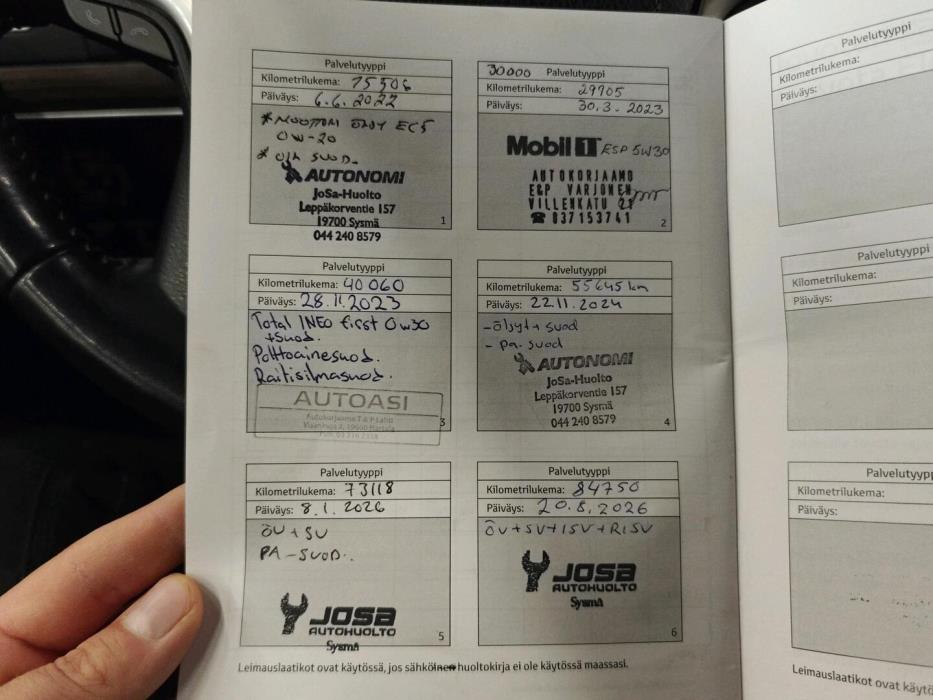 Palvelutyyppi
Kilometrilukema: 15306
Päiväys: 6.6.2022
*MOOTTORI ÖLJY EC5
0W-20
* ÖLJ. SUOD.
AUTONOMI
JoSa-Huolto
Leppäkorventie 157
19700 Sysmä
044 240 8579
1
30000 Palvelutyyppi
Kilometrilukema: 29905
Päiväys: 30.3.2023
Mobil 1 ESP 5W30
AUTOKORJAAMO
E&P VARJONEN
VILLENKATU
☎ 037153741
2
Palvelutyyppi
Kilometrilukema: 40 060
Päiväys: 28.11.2023
Total INEO first 0w30
+suod.
Polttoainesuod.
Raitisilmasuod.
AUTOASI
Autokorjaamo T & P Lahti
3
Palvelutyyppi
Kilometrilukema: 55645 km
Päiväys: 22.11.2024
-öljyt+ suod
- pa. suod
AUTONOMI
JoSa-Huolto
Leppäkorventie 157
19700 Sysmä
044 240 8579
4
Palvelutyyppi
Kilometrilukema: 73118
Päiväys: 8.1.2026
ÖV+SV
PA-SUOD.
JOSA
AUTOHUOLTO
Sysmä
5
Palvelutyyppi
Kilometrilukema: 84750
Päiväys: 20.8.2026
ÖV+SV+ISV+RISV
JOSA
AUTOHUOLTO
Sysmä
6
Leimauslaatikot ovat käytössä, jos sähköinen huoltokirja ei ole käytössä maassasi.
Palvelutyyppi
Kilometrilukema:
Päiväys:
Palvelutyyppi
Kilometrilukema:
Päiväys:
Palvelutyypp
Kilometrilukema:
Päiväys:
Leimauslaatikot ovat käytö